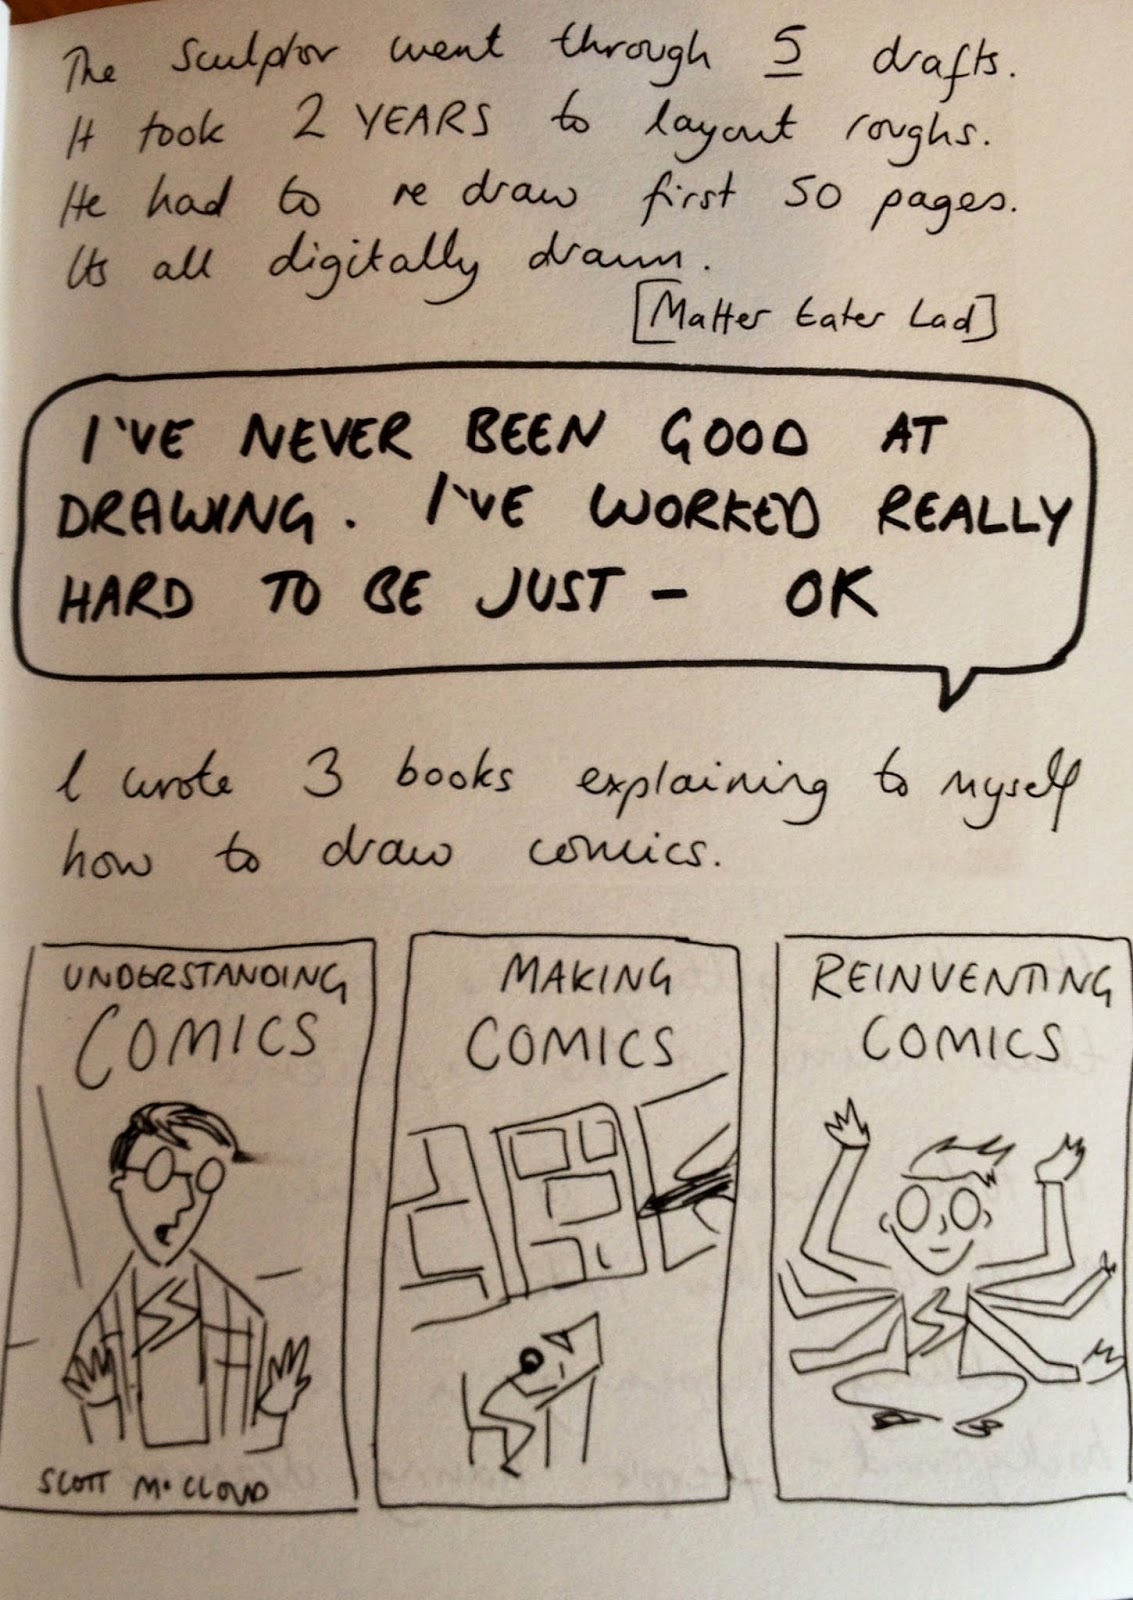 The Sculptor went through 5 drafts.
It took 2 YEARS to layout roughs.
He had to re draw first 50 pages.
Its all digitally drawn.
[Matter Eater Lad]
I'VE NEVER BEEN GOOD AT
DRAWING. I'VE WORKED REALLY
HARD TO BE JUST - OK
I wrote 3 books explaining to myself
how to draw comics.
UNDERSTANDING
COMICS
SCOTT McCLOUD
MAKING
COMICS
REINVENTING
COMICS